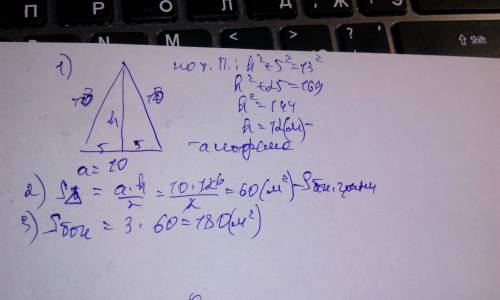 П Р О Л Д Ж Э
N M < > ? Shift
1) по т. П.: h²+5²=13²
h²+25=169
h²=144
13 h 13 h=12(м)-
5 5 -апофема
a=10
2) S△ = a·h/2 = 10·12 6/2 = 60(м²)-Sбок. грани
3) Sбок = 3·60=180(м²)